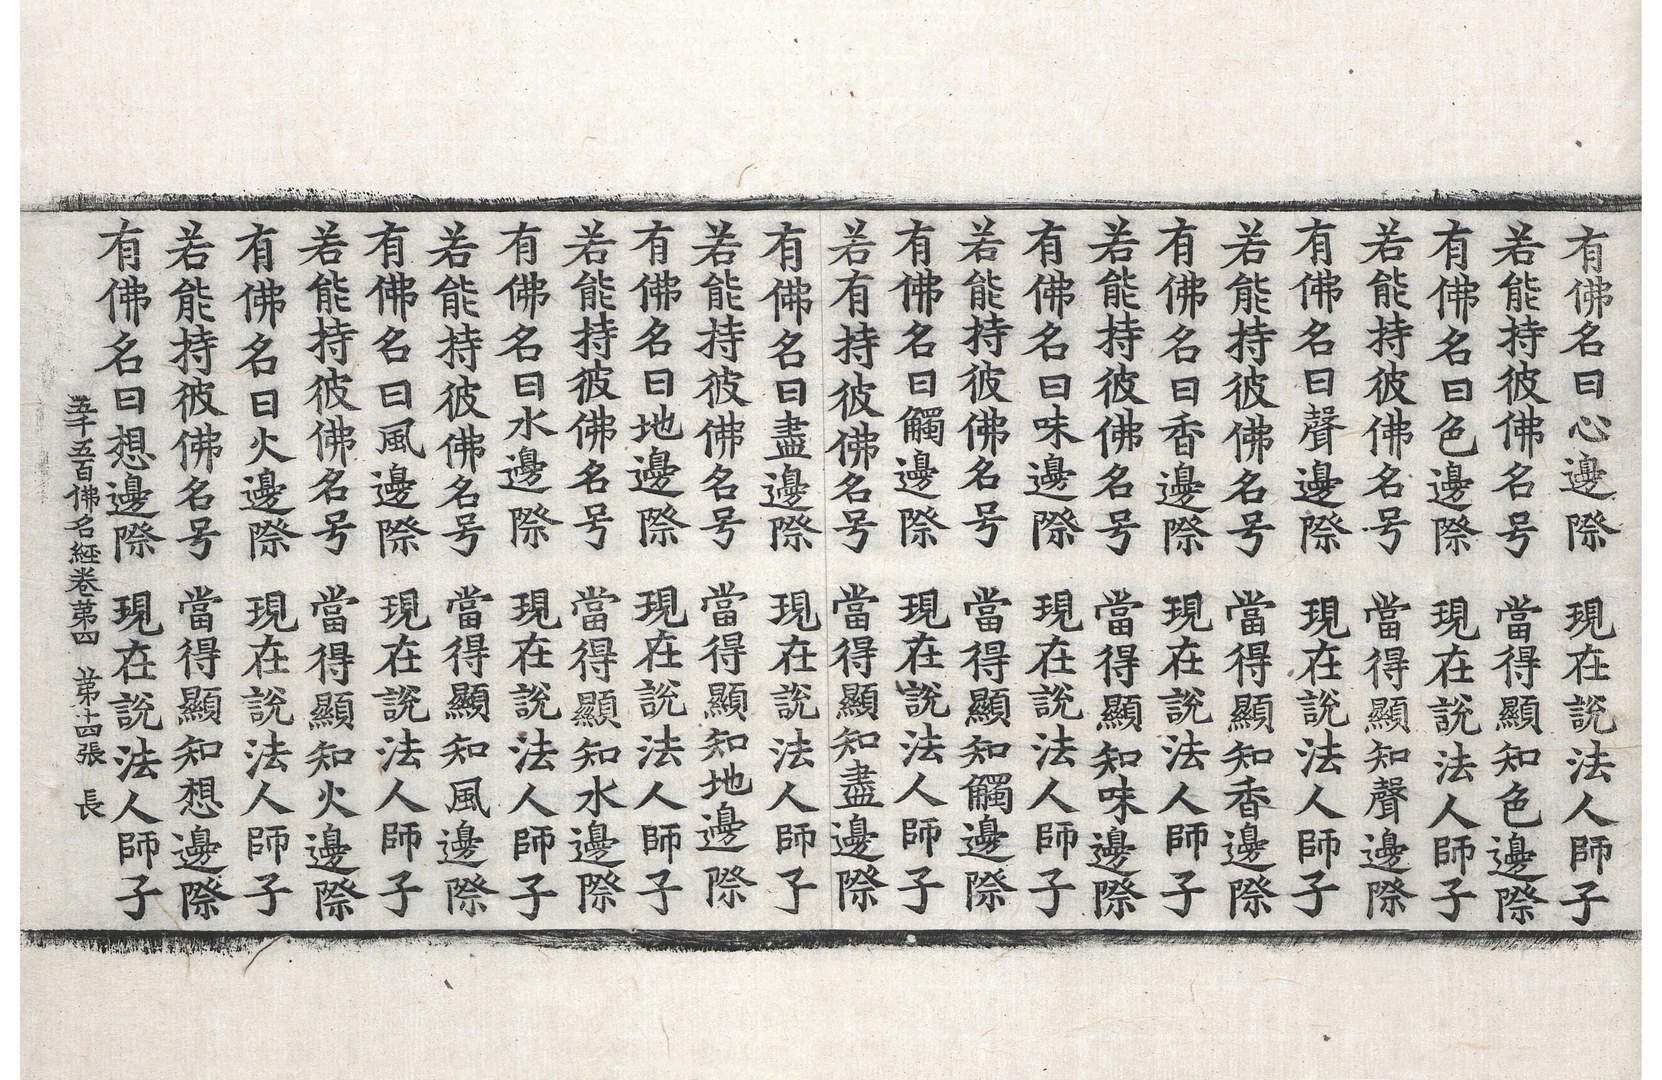 有佛名曰心邊際　現在說法人師子
若能持彼佛名号　當得顯知色邊際
有佛名曰色邊際　現在說法人師子
若能持彼佛名号　當得顯知聲邊際
有佛名曰聲邊際　現在說法人師子
若能持彼佛名号　當得顯知香邊際
有佛名曰香邊際　現在說法人師子
若能持彼佛名号　當得顯知味邊際
有佛名曰味邊際　現在說法人師子
若能持彼佛名号　當得顯知觸邊際
有佛名曰觸邊際　現在說法人師子
若有持彼佛名号　當得顯知盡邊際
有佛名曰盡邊際　現在說法人師子
若能持彼佛名号　當得顯知地邊際
有佛名曰地邊際　現在說法人師子
若能持彼佛名号　當得顯知水邊際
有佛名曰水邊際　現在說法人師子
若能持彼佛名号　當得顯知風邊際
有佛名曰風邊際　現在說法人師子
若能持彼佛名号　當得顯知火邊際
有佛名曰火邊際　現在說法人師子
若能持彼佛名号　當得顯知想邊際
有佛名曰想邊際　現在說法人師子
五千五百佛名経卷第四　第十四張　長